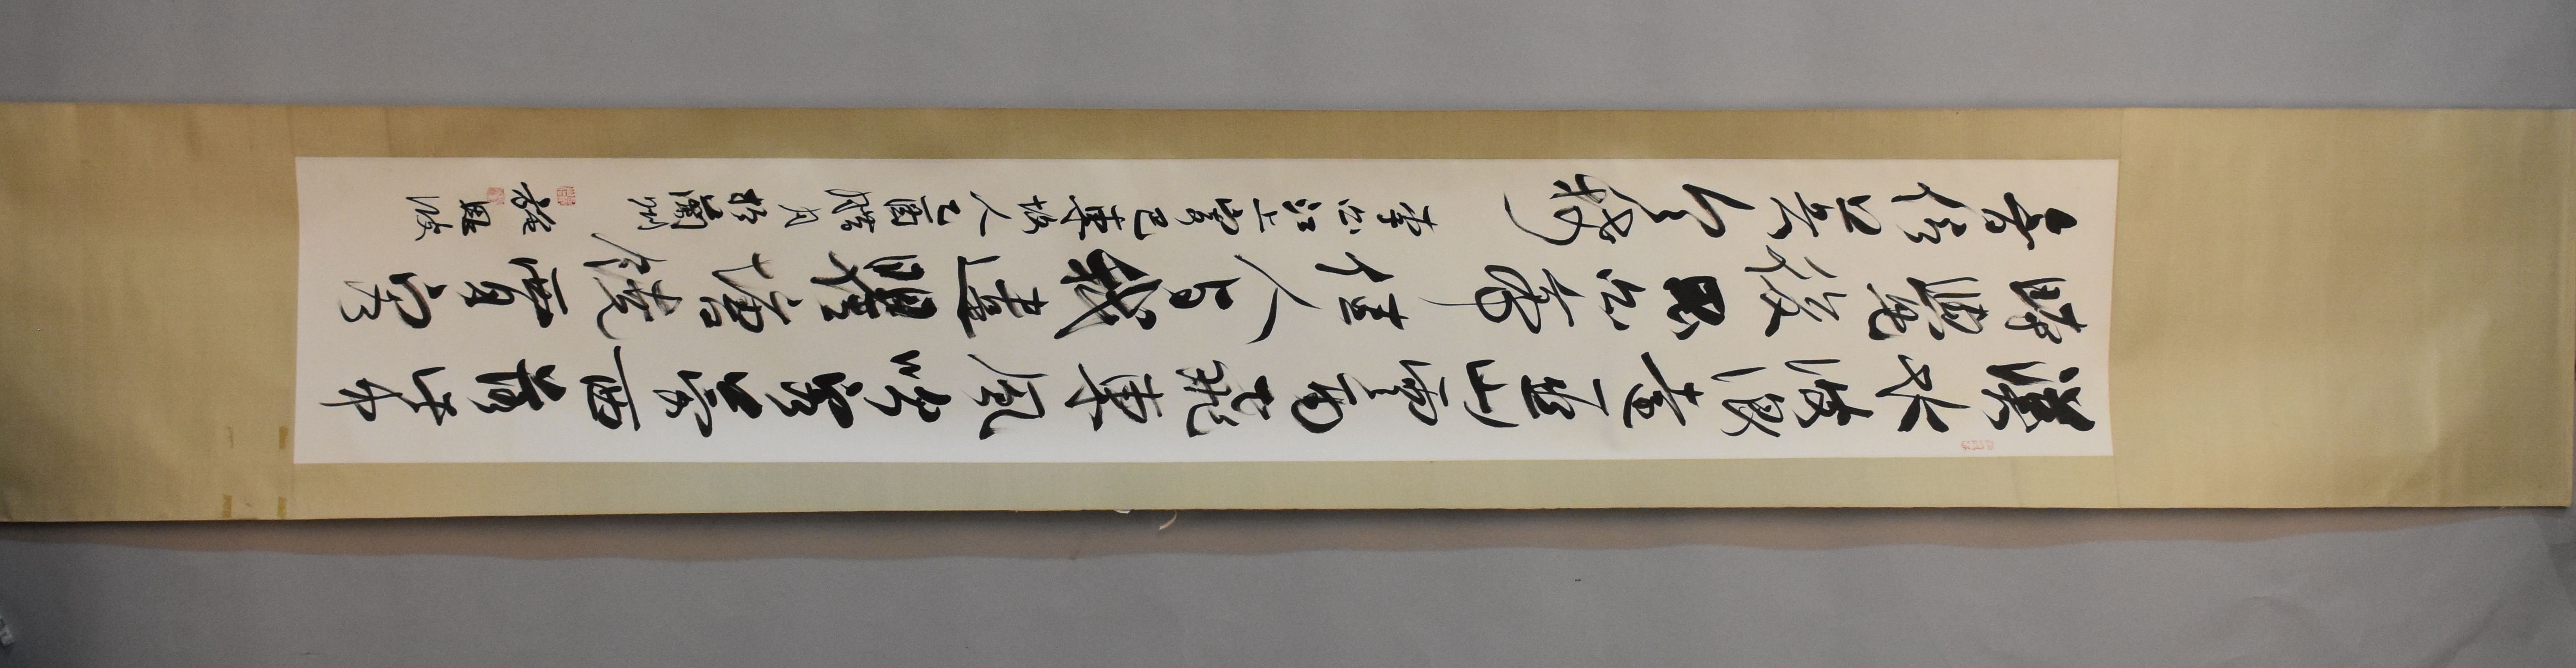 漢水波浪遠巫山雲雨飛東風吹客夢西落此中
時覺後思白帝佳人與我違瞿塘饒賈客
音信莫令稀
李白江上寄巴東故人乙酉臘月於蘭州